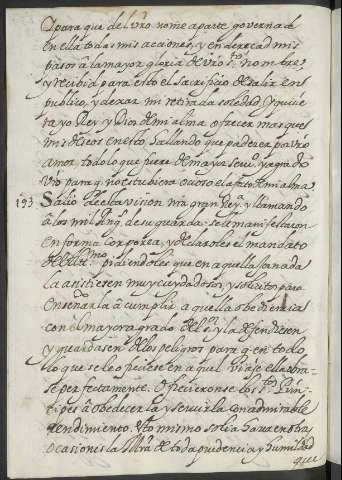 para que del vro no me aparte, governad
en ella todas mis acciones, y enderezad mis
pasos â la mayor gloria de vro sto nombre:
y recibid para esto el sacrificio de salir en
publico, y dexar mi retirada soledad. Y quisie
ra yo Rey y Dios de mi alma ofrecer mas que
mis deseos en esto, hallando que padecer por vro
amor todo lo que fuere de mayor servo. y agrado
vro para q no estubiera ocioso el afecto de mi alma
193 Salio de esta vision nra gran Reya. y llamando
â los mil Angs. de su guarda, se le manifestaron
en forma corporea, y declaroles el mandato
del Altmo. pidiendoles que en aquella jornada
la asistiesen muy cuydadosos, y solicitos para
enseñarla â cumplir aquella obediencia
con el mayor agrado del Sr. y la defendiesen
y guardasen de los peligros para q en todo
lo que se le ofreciese en aquel viaje ella obra-
se perfectamente. Ofrecieronse los stos Prin-
cipes â obedecerla y servirla con admirable
rendimiento. Esto mismo solia hacer en otras
ocasiones la Mra. de toda prudencia y humildad
que